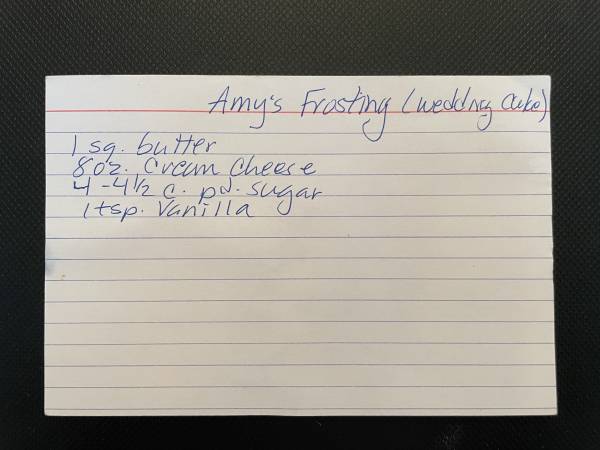 Amy's Frosting (wedding cake)
1 sq. butter
8 oz. cream cheese
4-4 1/2 c. pd. sugar
1 tsp. vanilla